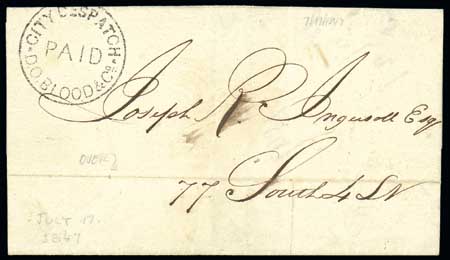 CITY DESPATCH
PAID
D.O. BLOOD & Co.
Joseph R. Ingersoll Esq
OVER
77 South 4 St
JULY 17.
1847